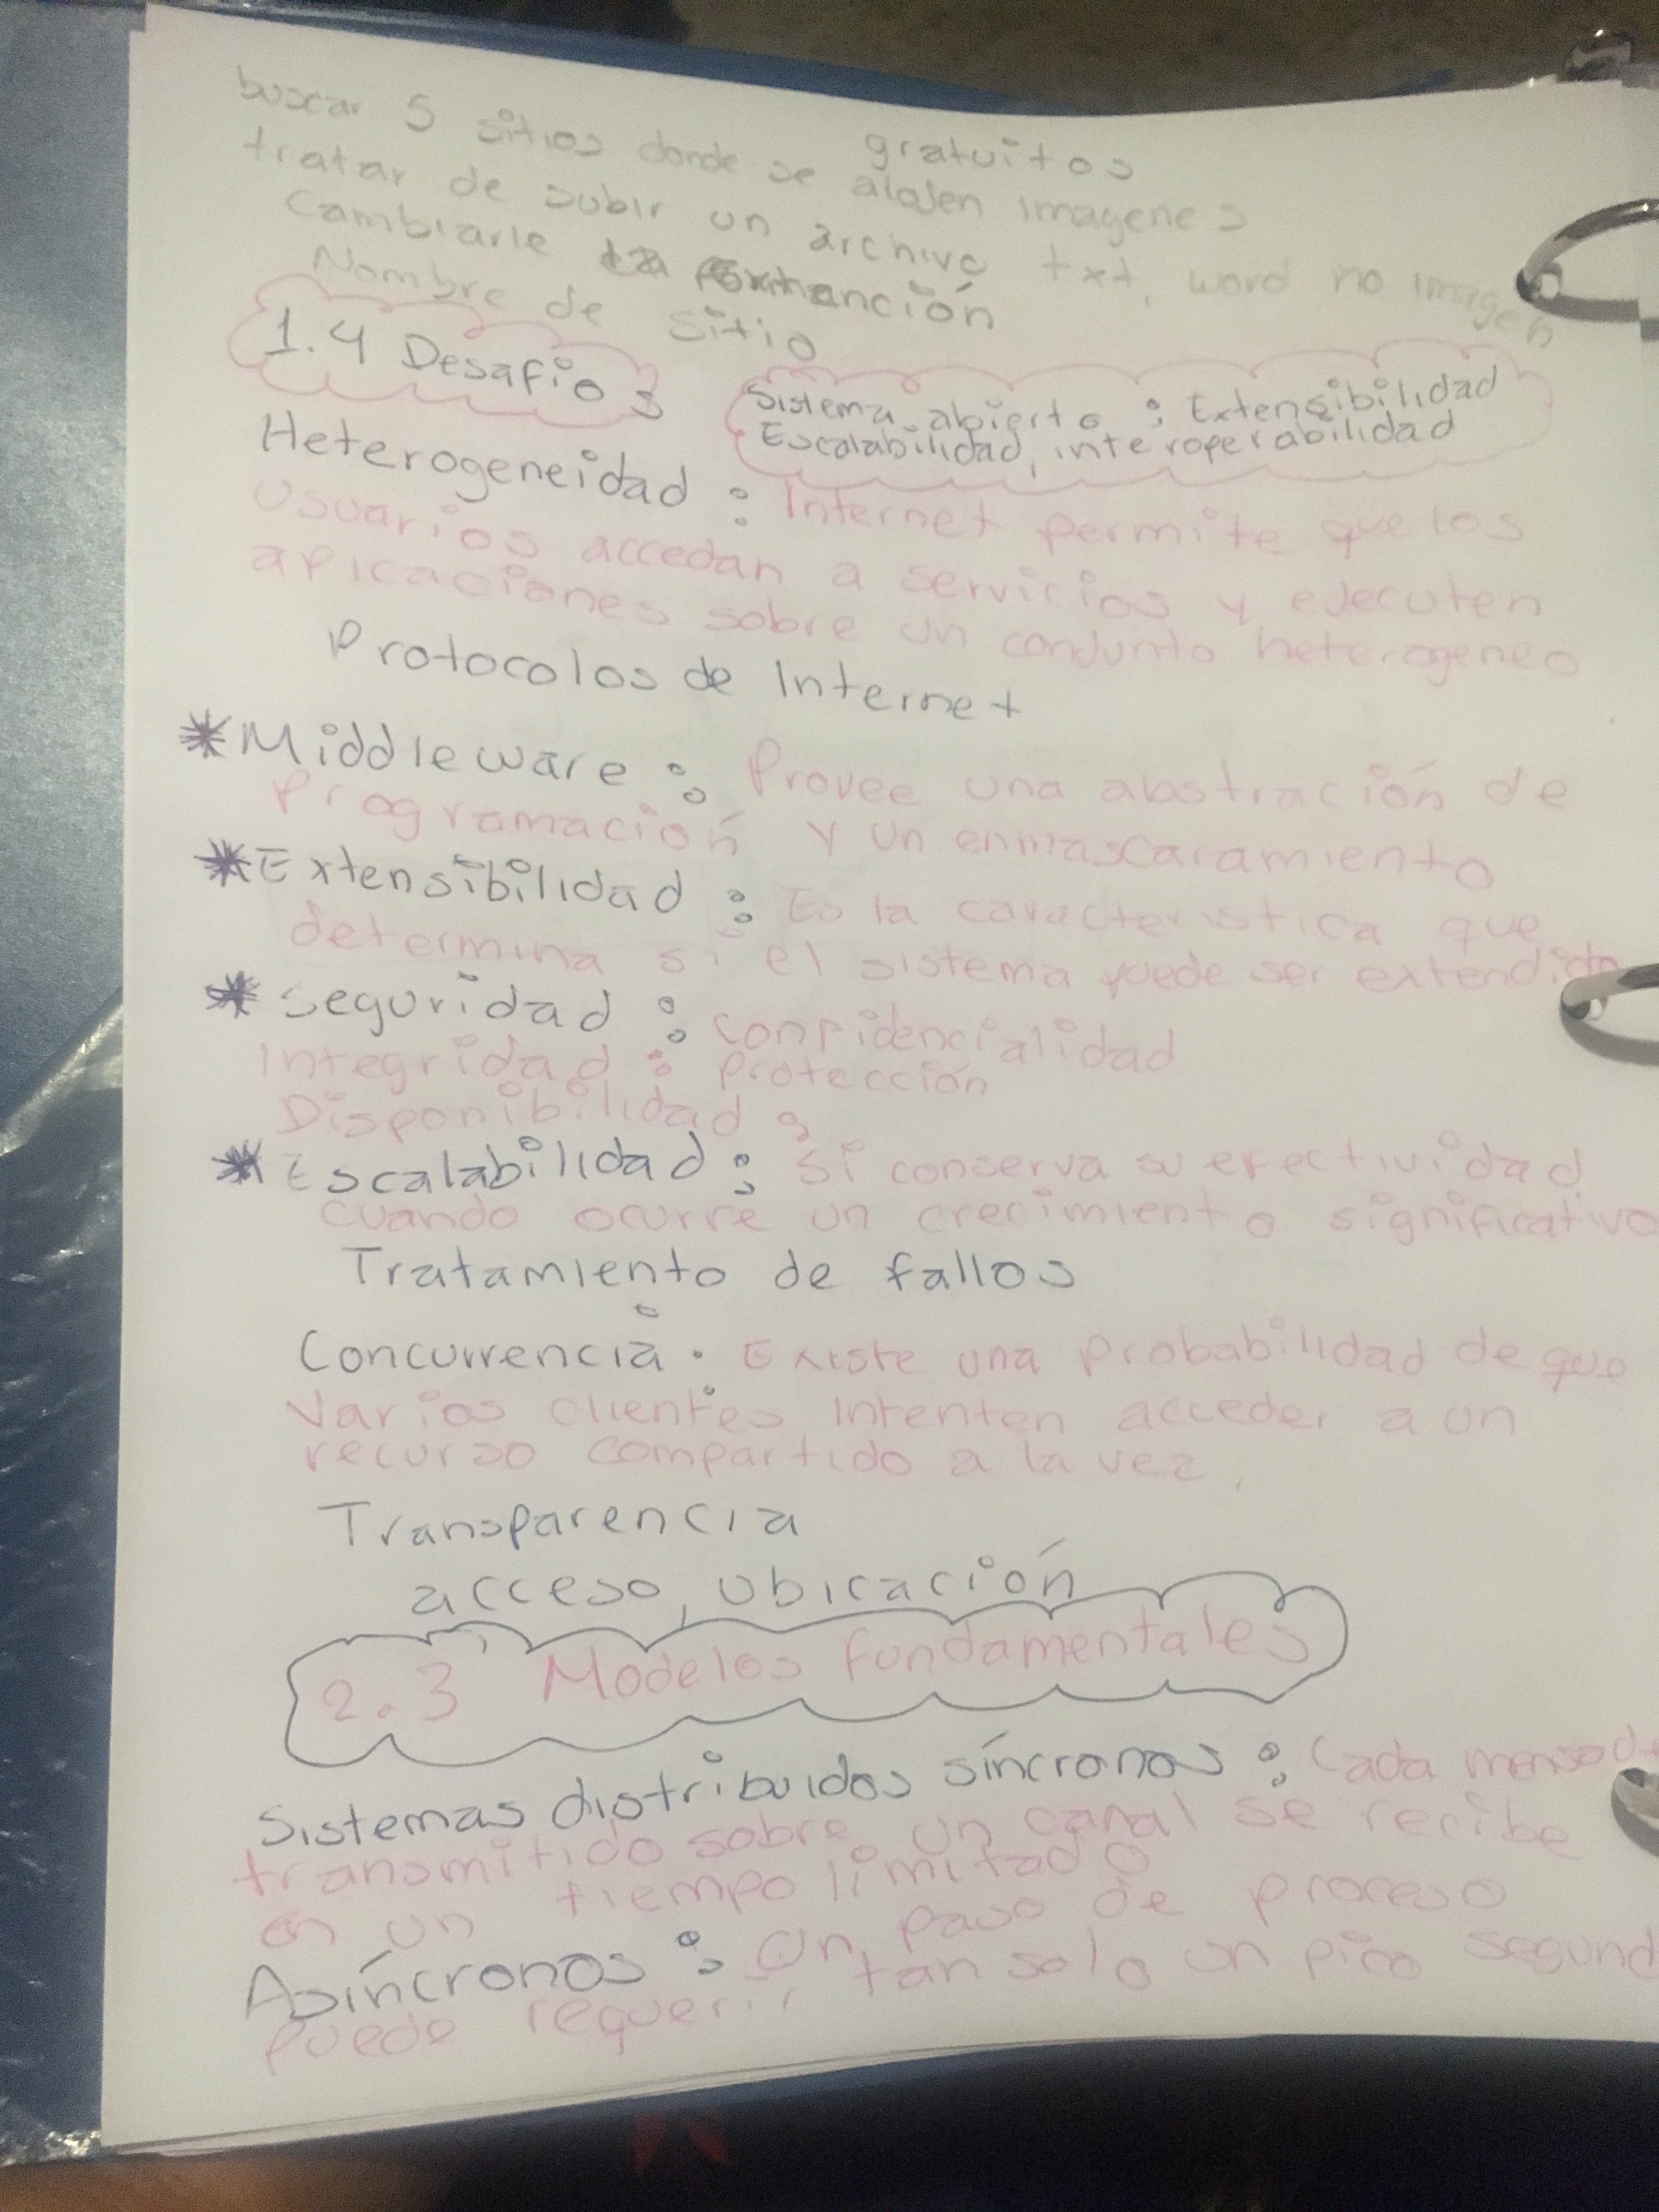 buscar 5 sitios donde se alojen imagenes
gratuitos
tratar de subir un archivo txt, word no imagen
Cambiarle la extanción
Nombre de sitio
1.4 Desafios
Sistema abierto : Extensibilidad
Escalabilidad, interoperabilidad
Heterogeneidad : Internet permite que los
Usuarios accedan a servicios y ejecuten
aplicaciones sobre un conjunto heterogeneo
Protocolos de Internet
*Middleware : Provee una abstración de
Programación y un enmascaramiento
*Extensibilidad : Es la caracteristica que
determina si el sistema puede ser extendido
*Seguridad : confidencialidad
Integridad : Protección
Disponibilidad :
*Escalabilidad : Si conserva su efectividad
cuando ocurre un crecimiento significativo
Tratamiento de fallos
Concurrencia : Existe una probabilidad de que
Varios clientes intenten acceder a un
recurso compartido a la vez,
Transparencia
acceso, ubicación
2.3 Modelos fundamentales
Sistemas distribuidos síncronos : Cada mensaje
transmitido sobre un canal se recibe
en un tiempo limitado
Asíncronos : Un paso de proceso
puede requerir tan solo un pico segund